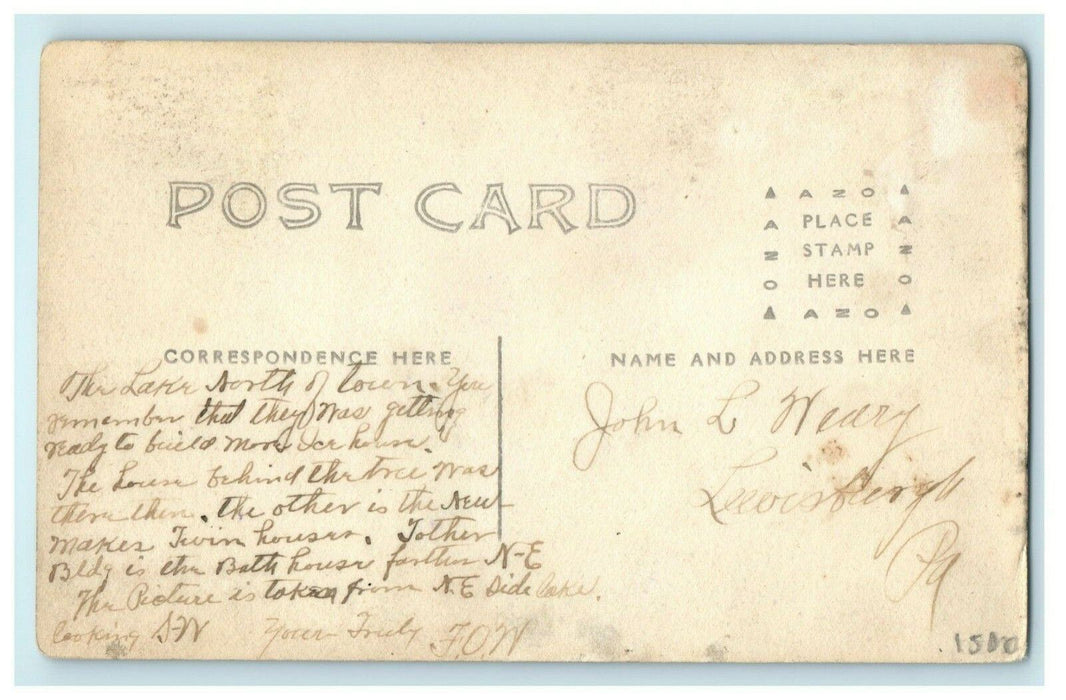 POST CARD
AZO
PLACE
STAMP
HERE
AZO
AZO
AZO
CORRESPONDENCE HERE
The Lake North of town. You
remember that they was getting
ready to build more Ice house.
The house behind the tree was
there then. the other is the New
makes Twin houses. Tother
Bldg is the Bath house farther N-E
The Picture is taken from N.E Side lake.
looking S-W Your Truly F.O.W
NAME AND ADDRESS HERE
John L Weary
Lewisbergh
Pa
1500